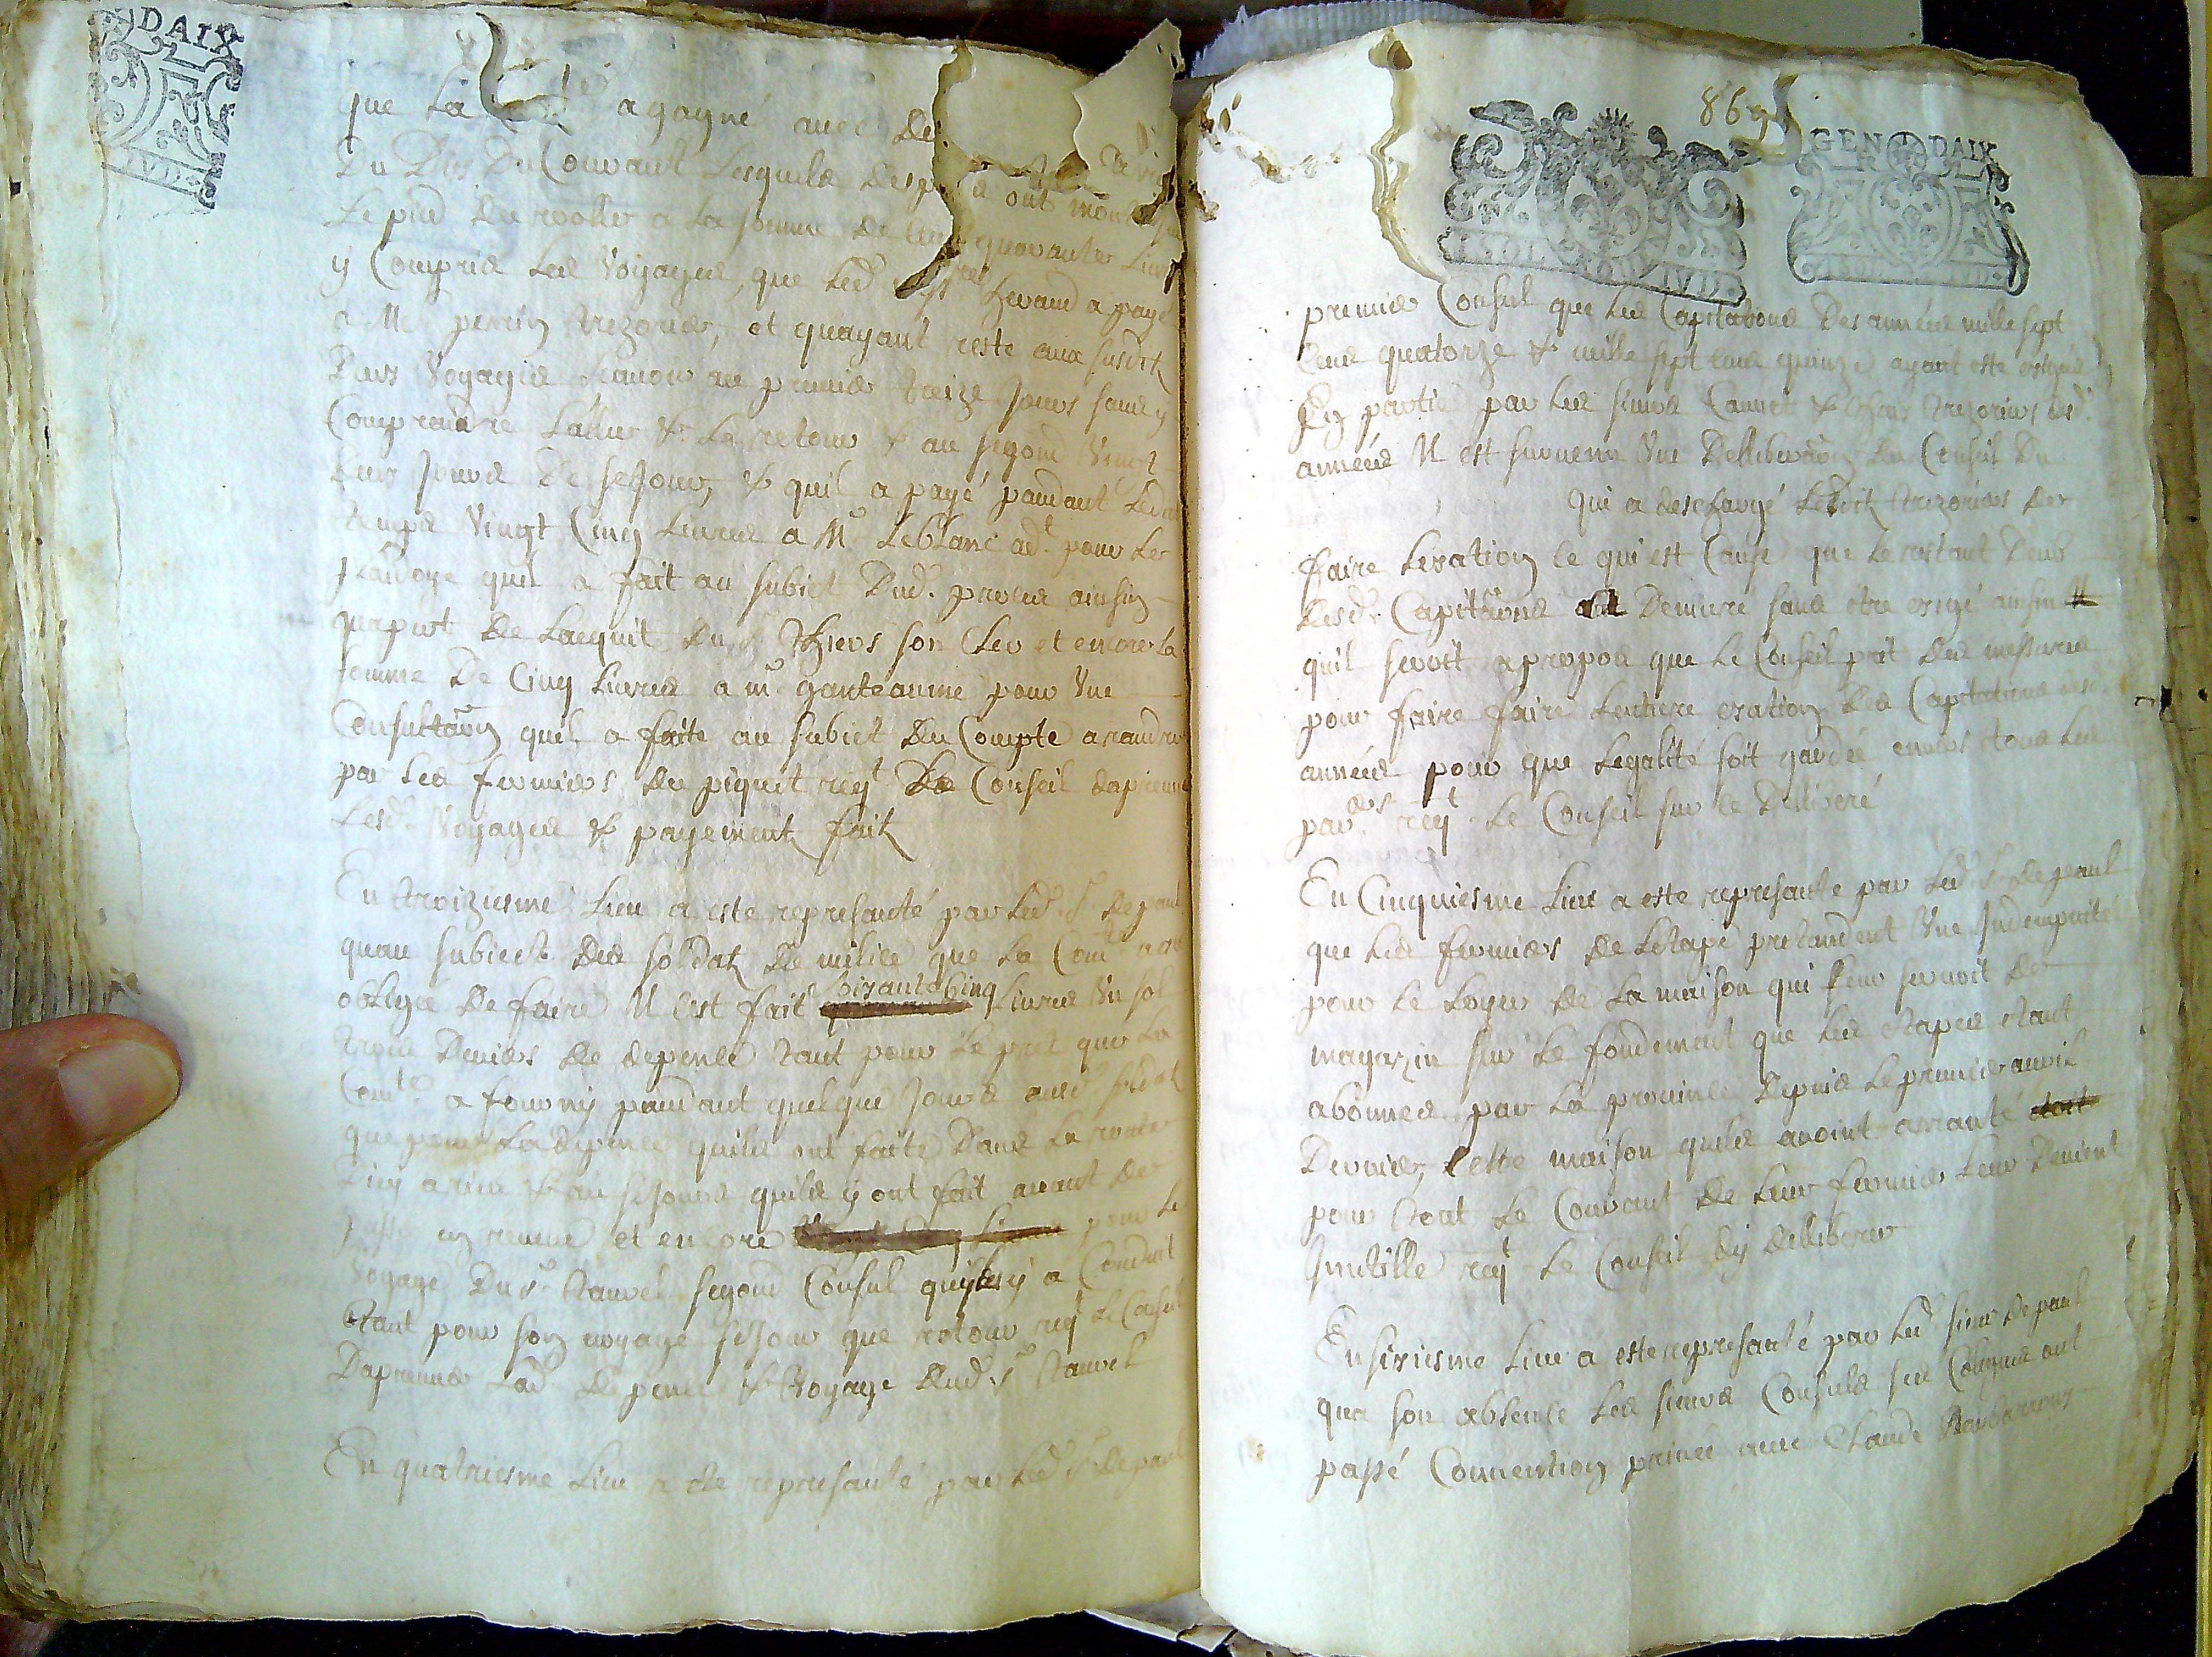 DAIX
IVD
que La a gagné avec de
Du Dix Du Courant Lesquels Despans ont monté
Le pied du roolle a la somme de cent quarante Livres
y Compris Les Voyages, que Led. Sr a payé
a Me perrin trezorier, et quayant resté aux susdits
Deux Voyages scavoir au premier treize Jours sans y
Comprendre Laller & Le retour & au segond Vingt
deux Jours de seJour, & quil a payé pandant Led.
temps Vingt Cinq Livres a Mr Leblanc adt pour Les
plaidoyé quil a fait au subiet Dud. proces ainsin
quapert De Lacquit du Sr Thiers son Clerc et encore La
somme De Cinq Livres a mr ganteaume pour Vne
Consultaon quil a faite au subiet du Compte a randre
par Les fermiers du piquet reqt Le Conseil daprouver
Lesd. Voyages & payements faits
En troiziesme Lieu a esté represanté par Led. Sr depaul
quau subiect Des soldats de milice que La Comté a esté
obligée De faire Il Cest fait soixante Cinq Livres Vn sol
trois Deniers de depence tant pour Le pret que La
Comté a fourny pandant quelques Jours ausd. soldats
que pour La depence quils ont faite Dans La routte
Dicy a & au seJour quils y ont fait avant de
passer en reveue et encore pour Le
Voyage Du Sr tauvel segond Consul quy les y a Conduit
tant pour son voyage seJour que retour reqt Le Conseil
Daprouver Lad. depence & Voyage dud. Sr tauvel
En quatriesme Lieu a esté represanté par Led. Sr depaul
869
GEN DAIX
premier Consul que Les Capitaôns Des années mille sept
Cens quatorze & mille sept Cens quinze ayant esté exigées
En partie par Les sieurs Cannet & trezoriers esd.
années Il est survenu Vne Delliberaon du Conseil Du
Qui a descharge Lesdits trezoriers de
faire Lexation Ce qui est Cause que Le restant Deub
Desd. Capitaôns a Demuré sans être exigé ainsin
quil seroit a propos que Le Conseil prit des messures
pour faire faire Lentiere exation des Capitations desd.
années pour que Legalité soit gardée envers tous Les
parers reqt Le Conseil sur ce Deliveré
En Cinquiesme Lieu a esté represanté par Led. Sr depaul
que Les fermiers de Letape pretandent Vne Indempnité
pour Le Loyer de La maison qui Leur servoit de
magazin sur Le fondement que Les etapes etant
abonnées par La province Depuis Le premier avril
Dernier, Cette maison quils avoint arranté
pour tout Le Courant de Leur fermier Leur Devient
Inutille reqt Le Conseil dy delliberer
En sixiesme Lieu a esté represanté par Led. sieur depaul
qua son absence Les sieurs Consuls ses Colegues ont
passé Convention privée avec Claude Barbarroux